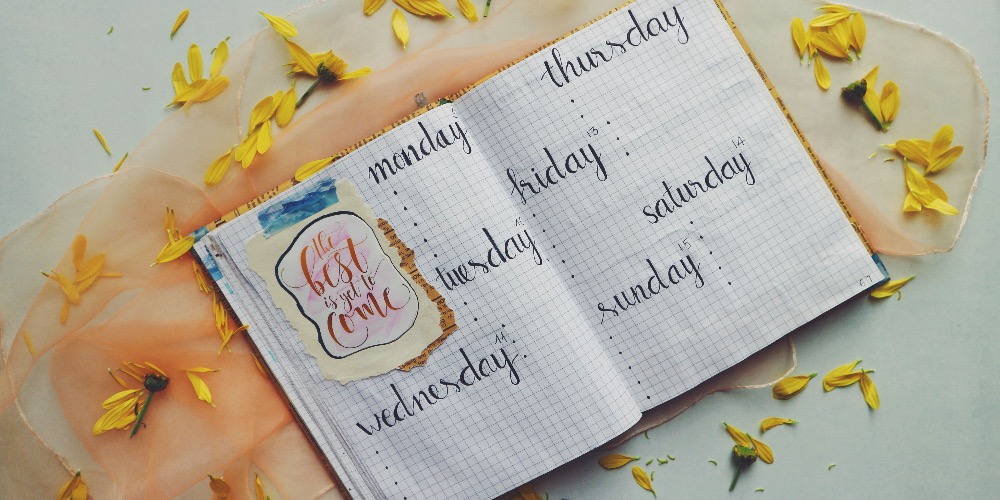 monday
the
best
is yet to
come
tuesday
wednesday 11
thursday
friday 13
saturday 14
sunday 15